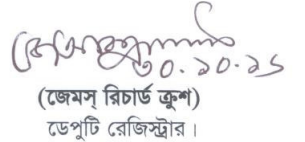 ৩০.১০.১৬
(জেমস্ রিচার্ড ক্রুশ)
ডেপুটি রেজিস্ট্রার।